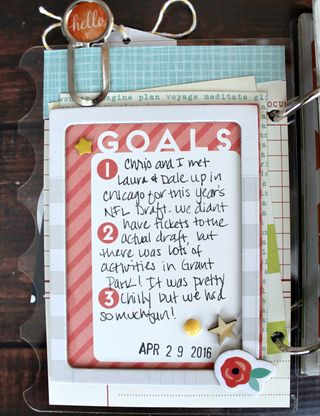 hello
wonder imagine plan voyage meditate
GOALS
1 Chris and I met
Laura & Dale up in
chicago for this year's
NFL Draft. We didnt
2 have tickets to the
actual draft, but
there was lots of
activities in Grant
Park! It was pretty
3 chilly but we had
so much fun!
APR 29 2016